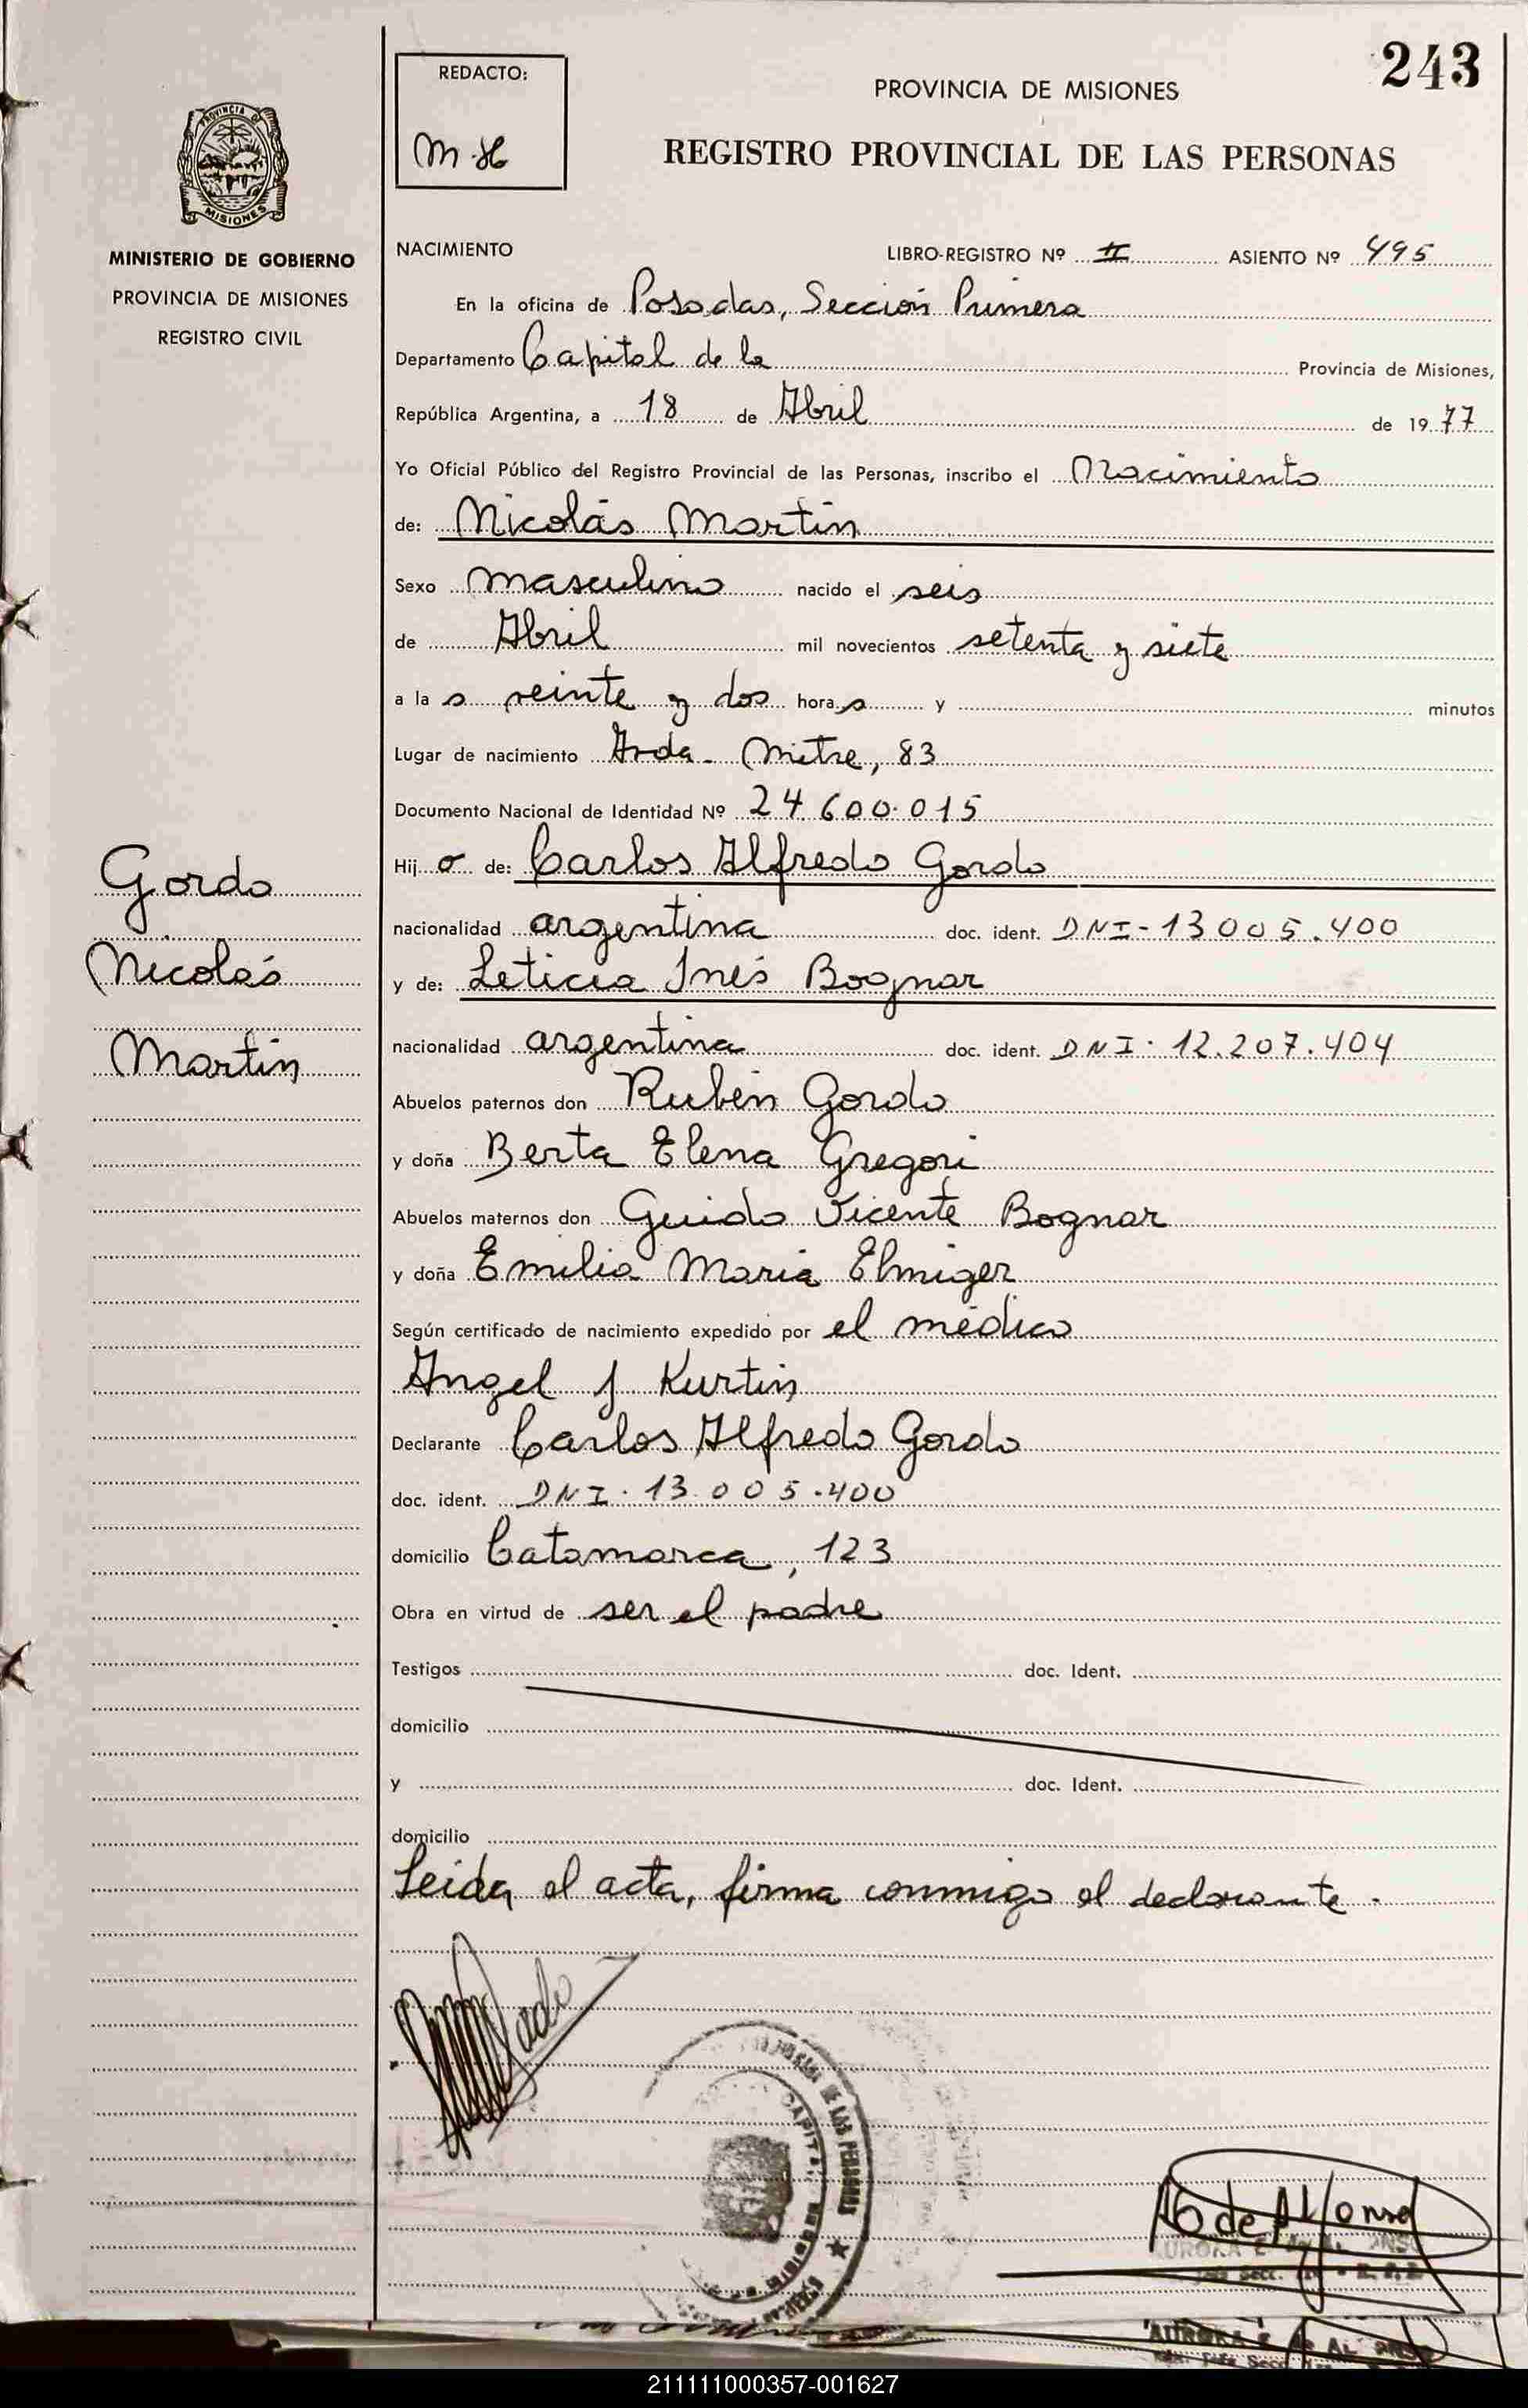 243
REDACTO:
PROVINCIA DE MISIONES
REGISTRO PROVINCIAL DE LAS PERSONAS
PROVINCIA DE
MISIONES
MINISTERIO DE GOBIERNO
PROVINCIA DE MISIONES
REGISTRO CIVIL
NACIMIENTO LIBRO-REGISTRO Nº II ASIENTO Nº 495
En la oficina de Posadas, Sección Primera
Departamento Capital de la Provincia de Misiones,
República Argentina, a 18 de Abril de 1977
Yo Oficial Público del Registro Provincial de las Personas, inscribo el Nacimiento
de: Nicolás Martín
Sexo masculino nacido el seis
de Abril mil novecientos setenta y siete
a las veinte y dos horas y minutos
Lugar de nacimiento Avda. Mitre, 83
Documento Nacional de Identidad Nº 24.600.015
Hijo de: Carlos Alfredo Gordo
nacionalidad argentina doc. ident. DNI-13.005.400
y de: Leticia Inés Bognar
nacionalidad argentina doc. ident. DNI. 12.207.404
Abuelos paternos don Rubén Gordo
y doña Berta Elena Gregori
Abuelos maternos don Guido Vicente Bognar
y doña Emilia María Elmiger
Según certificado de nacimiento expedido por el médico
Angel J Kurtin
Declarante Carlos Alfredo Gordo
doc. ident. DNI. 13.005.400
domicilio Catamarca, 123
Obra en virtud de ser el padre
Testigos doc. Ident.
domicilio
y doc. Ident.
domicilio
Leida el acta, firma conmigo el declarante.
Gordo
Nicolás
Martín
DE LAS PERSONAS
A G de Alfonso
211111000357-001627